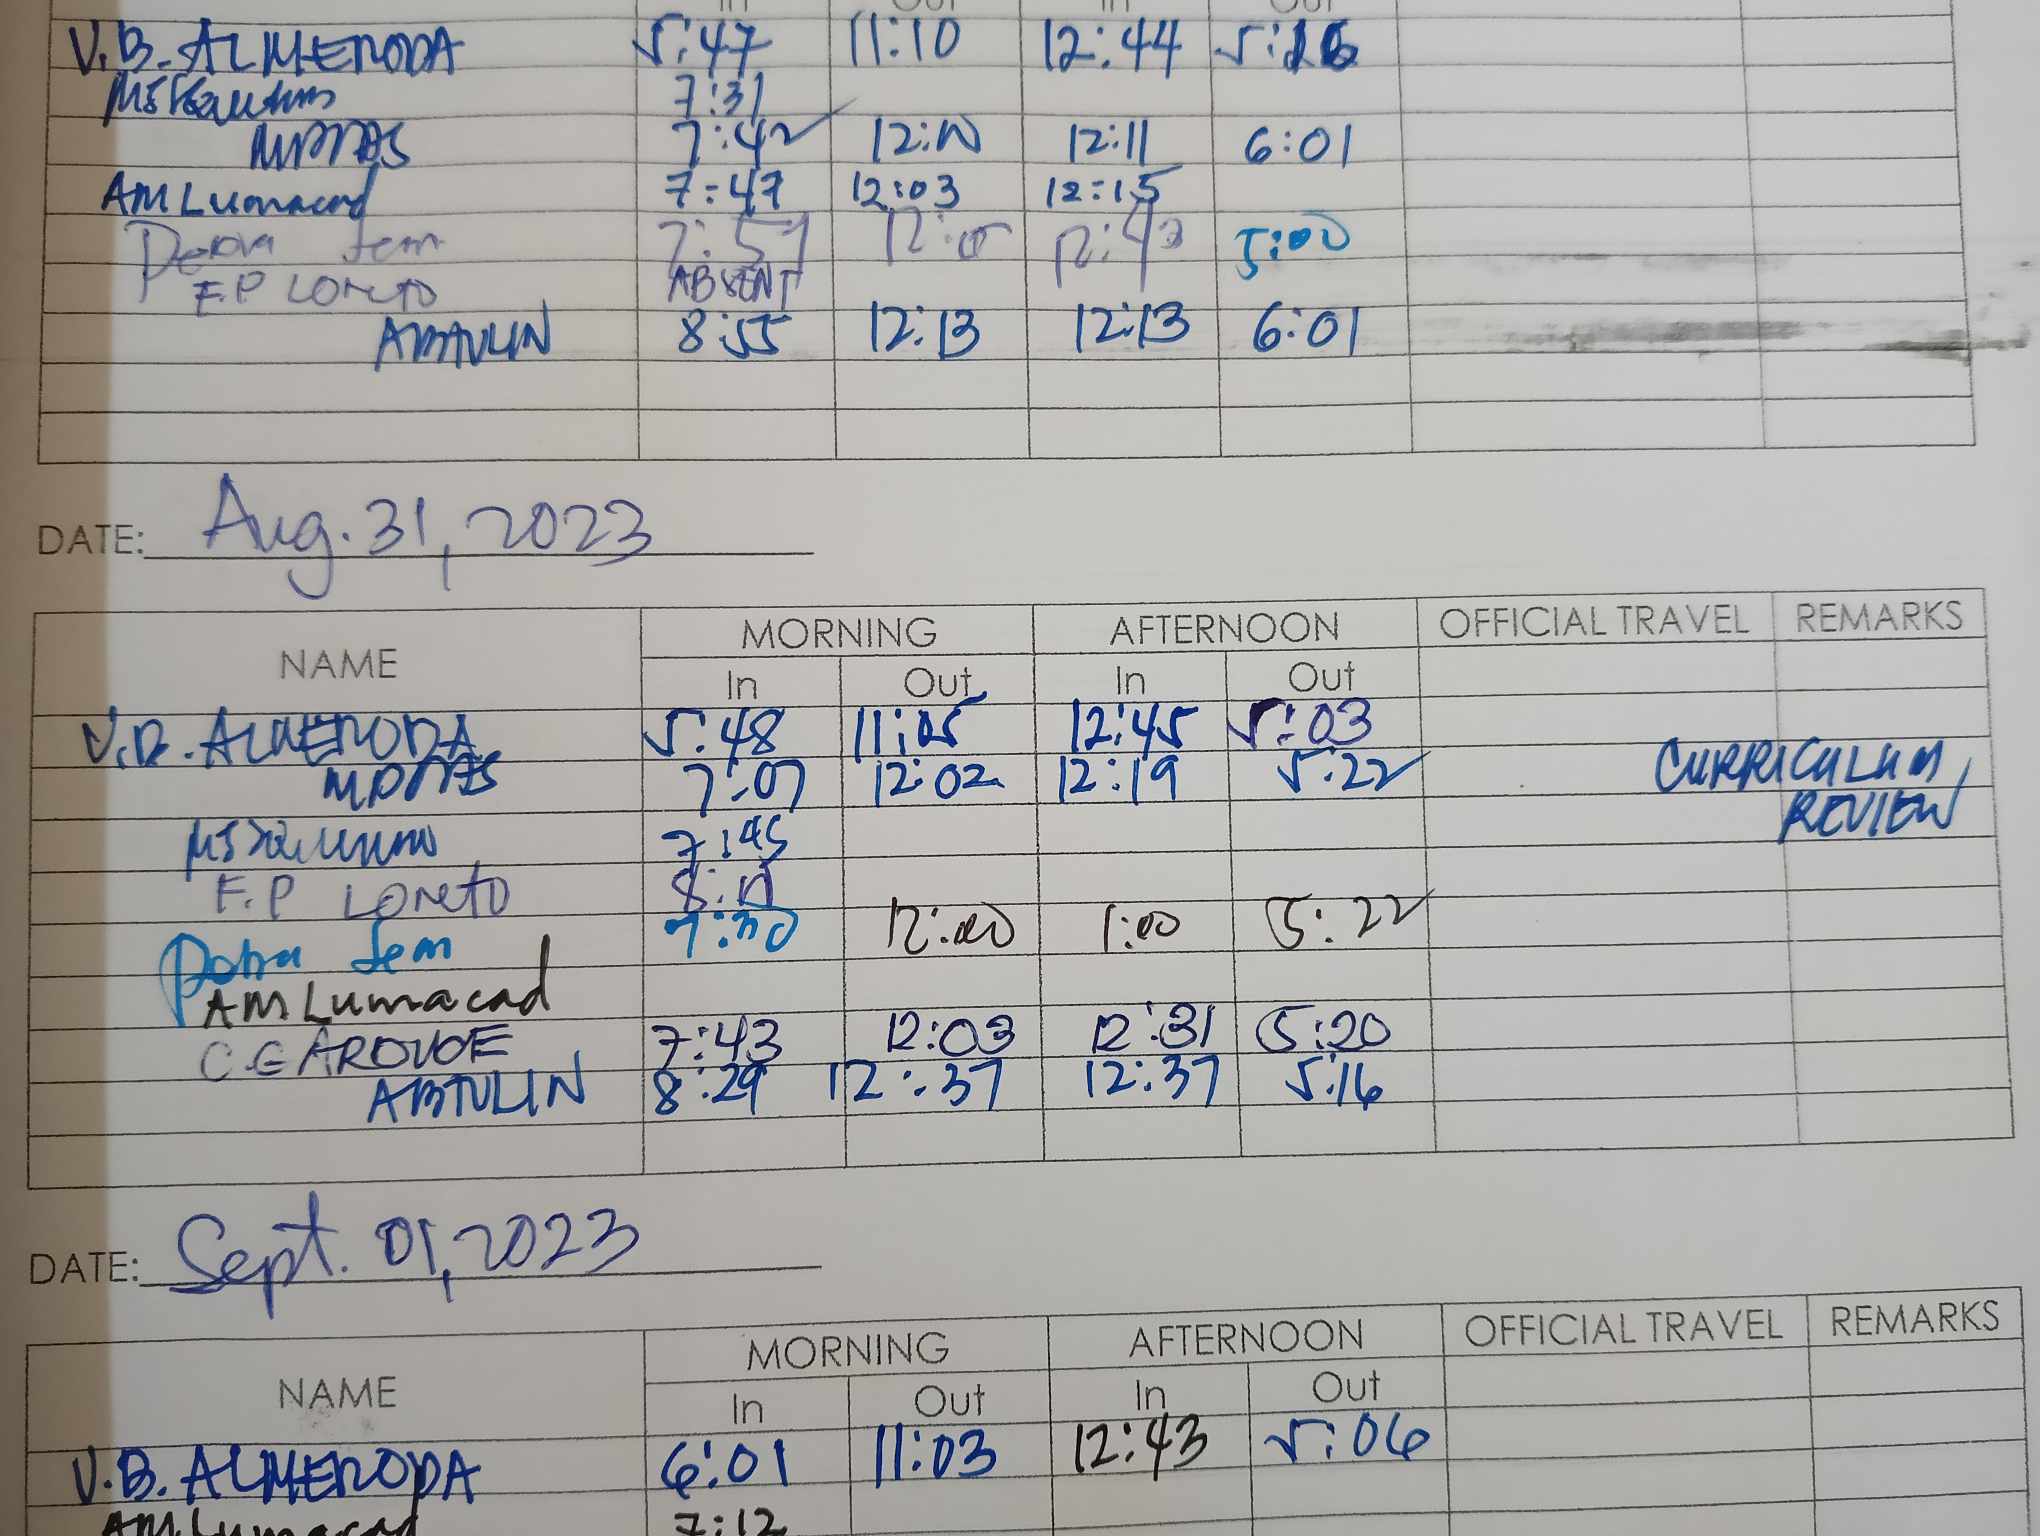 In Out In Out
V.B. ALMENODA 5:47 11:10 12:44
7:31
7:42 12:11 6:01
AM Lumacad 7:47 12:03 12:15
Fem 7:57 5:00
F.P LORETO ABSENT
ABTULIN 8:55 12:13 12:13 6:01
DATE: Aug. 31, 2023
NAME MORNING AFTERNOON OFFICIAL TRAVEL REMARKS
In Out In Out
V.B. ALMENODA 5:48 11:05 12:45 5:03
7:07 12:02 12:19 5:22 CURRICULUM
7:45 REVIEW
F.P LORETO
Fem 7:30 12:00 1:00 5:22
AM Lumacad
7:43 12:03 12:31 5:20
ABTULIN 8:29 12:37 12:37 5:16
DATE: Sept. 01, 2023
NAME MORNING AFTERNOON OFFICIAL TRAVEL REMARKS
In Out In Out
V.B. ALMENODA 6:01 11:03 12:43 5:06
AM Lumacad 7:12